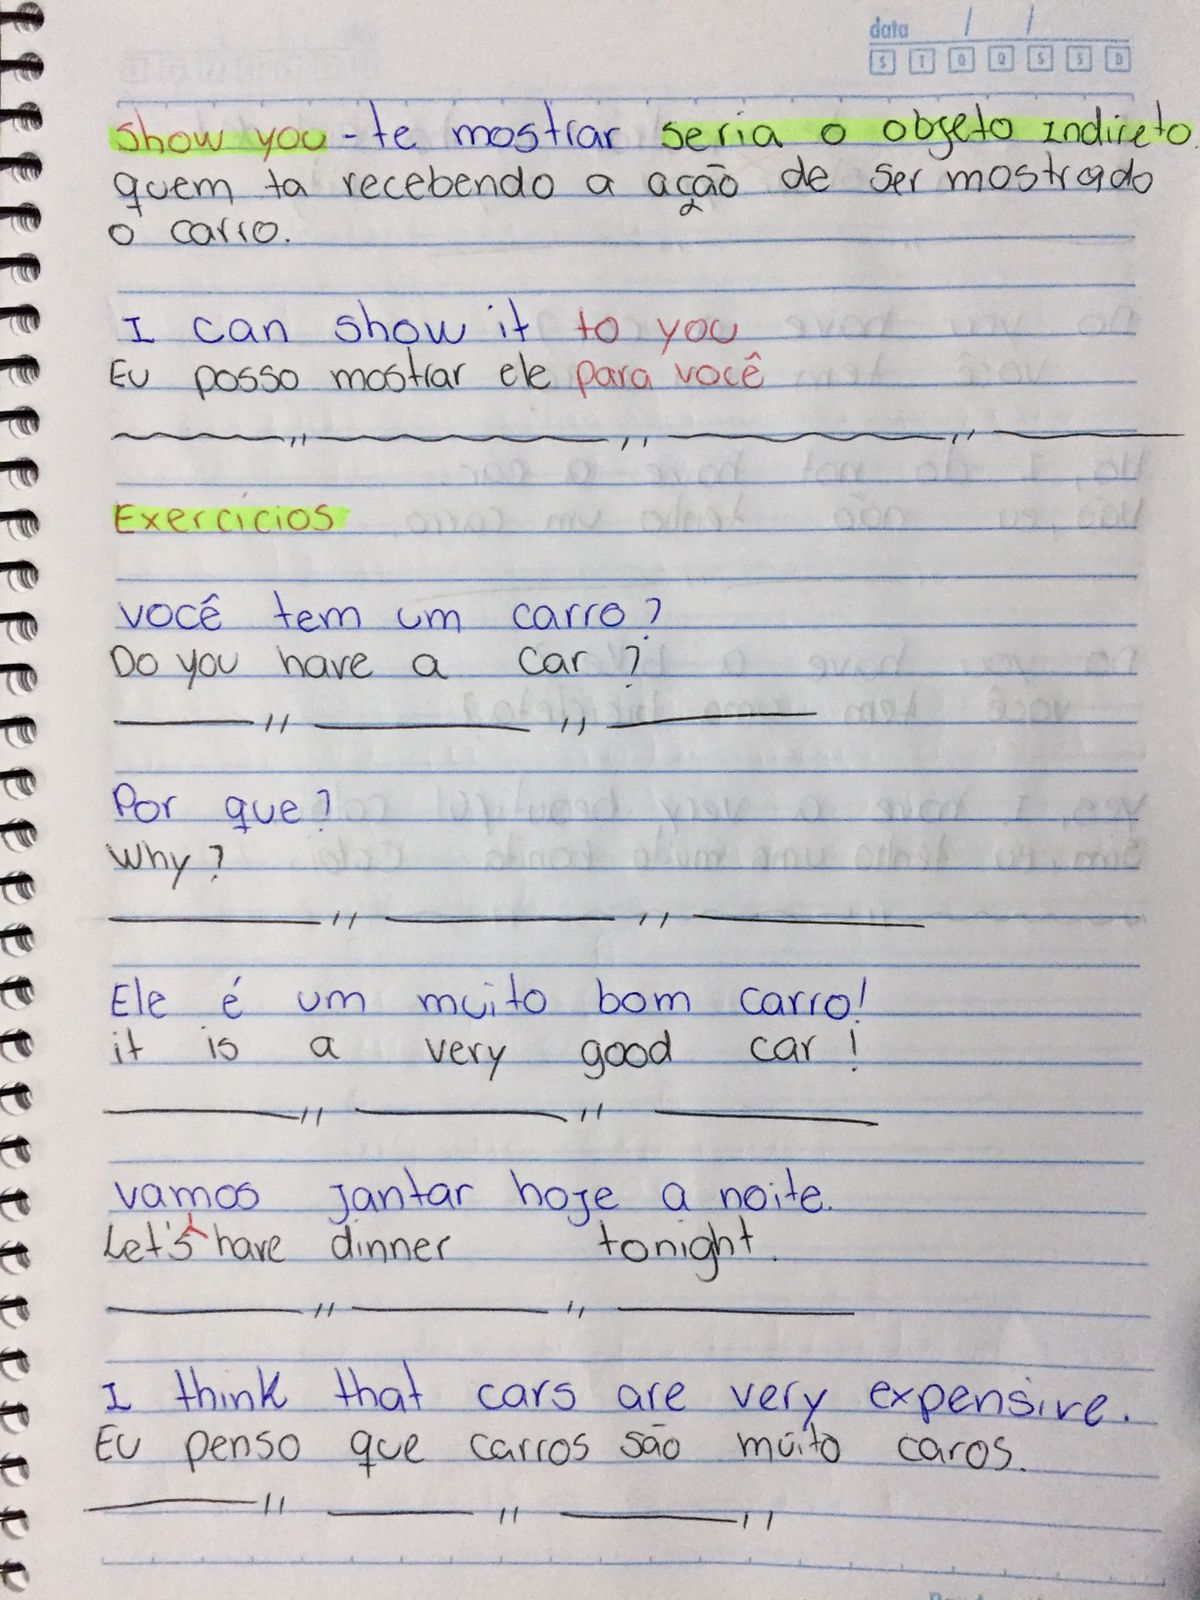 data / /
S T Q Q S S D
Show you - te mostrar seria o objeto Indireto.
quem ta recebendo a ação de ser mostrado
o carro.
I can show it to you
Eu posso mostrar ele para você
Exercícios
você tem um carro?
Do you have a car?
Por que?
Why?
Ele é um muito bom carro!
it is a very good car!
vamos jantar hoje a noite.
Let's have dinner tonight.
I think that cars are very expensive.
Eu penso que carros são muito caros.